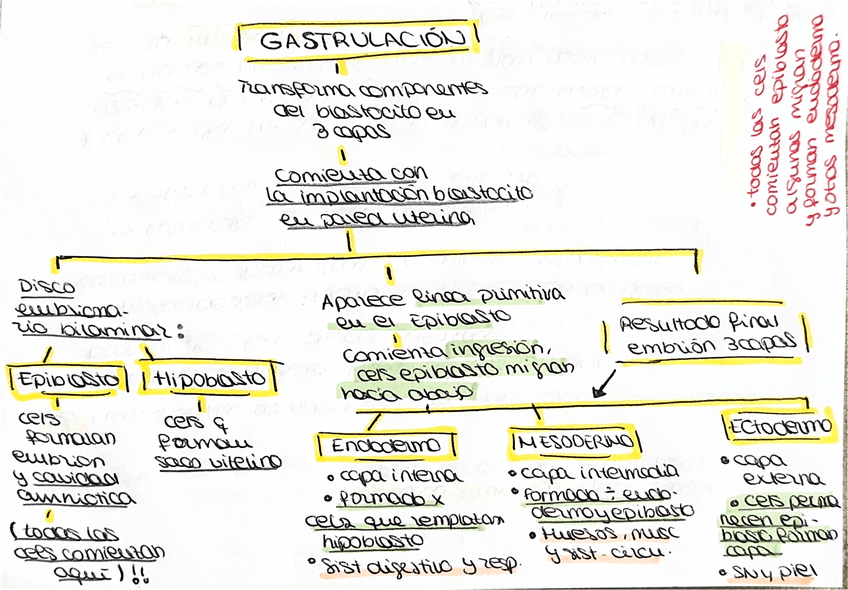 GASTRULACIÓN
Transforma componentes
del blastocito en
3 capas
Comienza con
la implantación blastocito
en pared uterina
• todas las cels
comienzan epiblasto
algunas migran
y forman endodermo
y otras mesodermo.
Disco
embriona-
rio bilaminar:
Epiblasto
Hipoblasto
cels
formaran
embrion
y cavidad
amniotica
(todas las
cels comienzan
aquí)!!
cels q
forman
saco vitelino
Aparece linea primitiva
en el Epiblasto
comienza ingresión,
cels epiblasto migran
hacia abajo
Resultado final
embrión 3 capas
Endodermo
• capa interna
• formado x
cels que remplazan
hipoblasto
• Sist digestivo y resp.
MESODERMO
• Capa intermedia
• Formado ÷ endo-
dermo y epiblasto
• Huesos, musc
y sist-circu.
ECTODERMO
• capa
externa
• cels perma
necen epi-
blasto forman
capa
• SN y piel